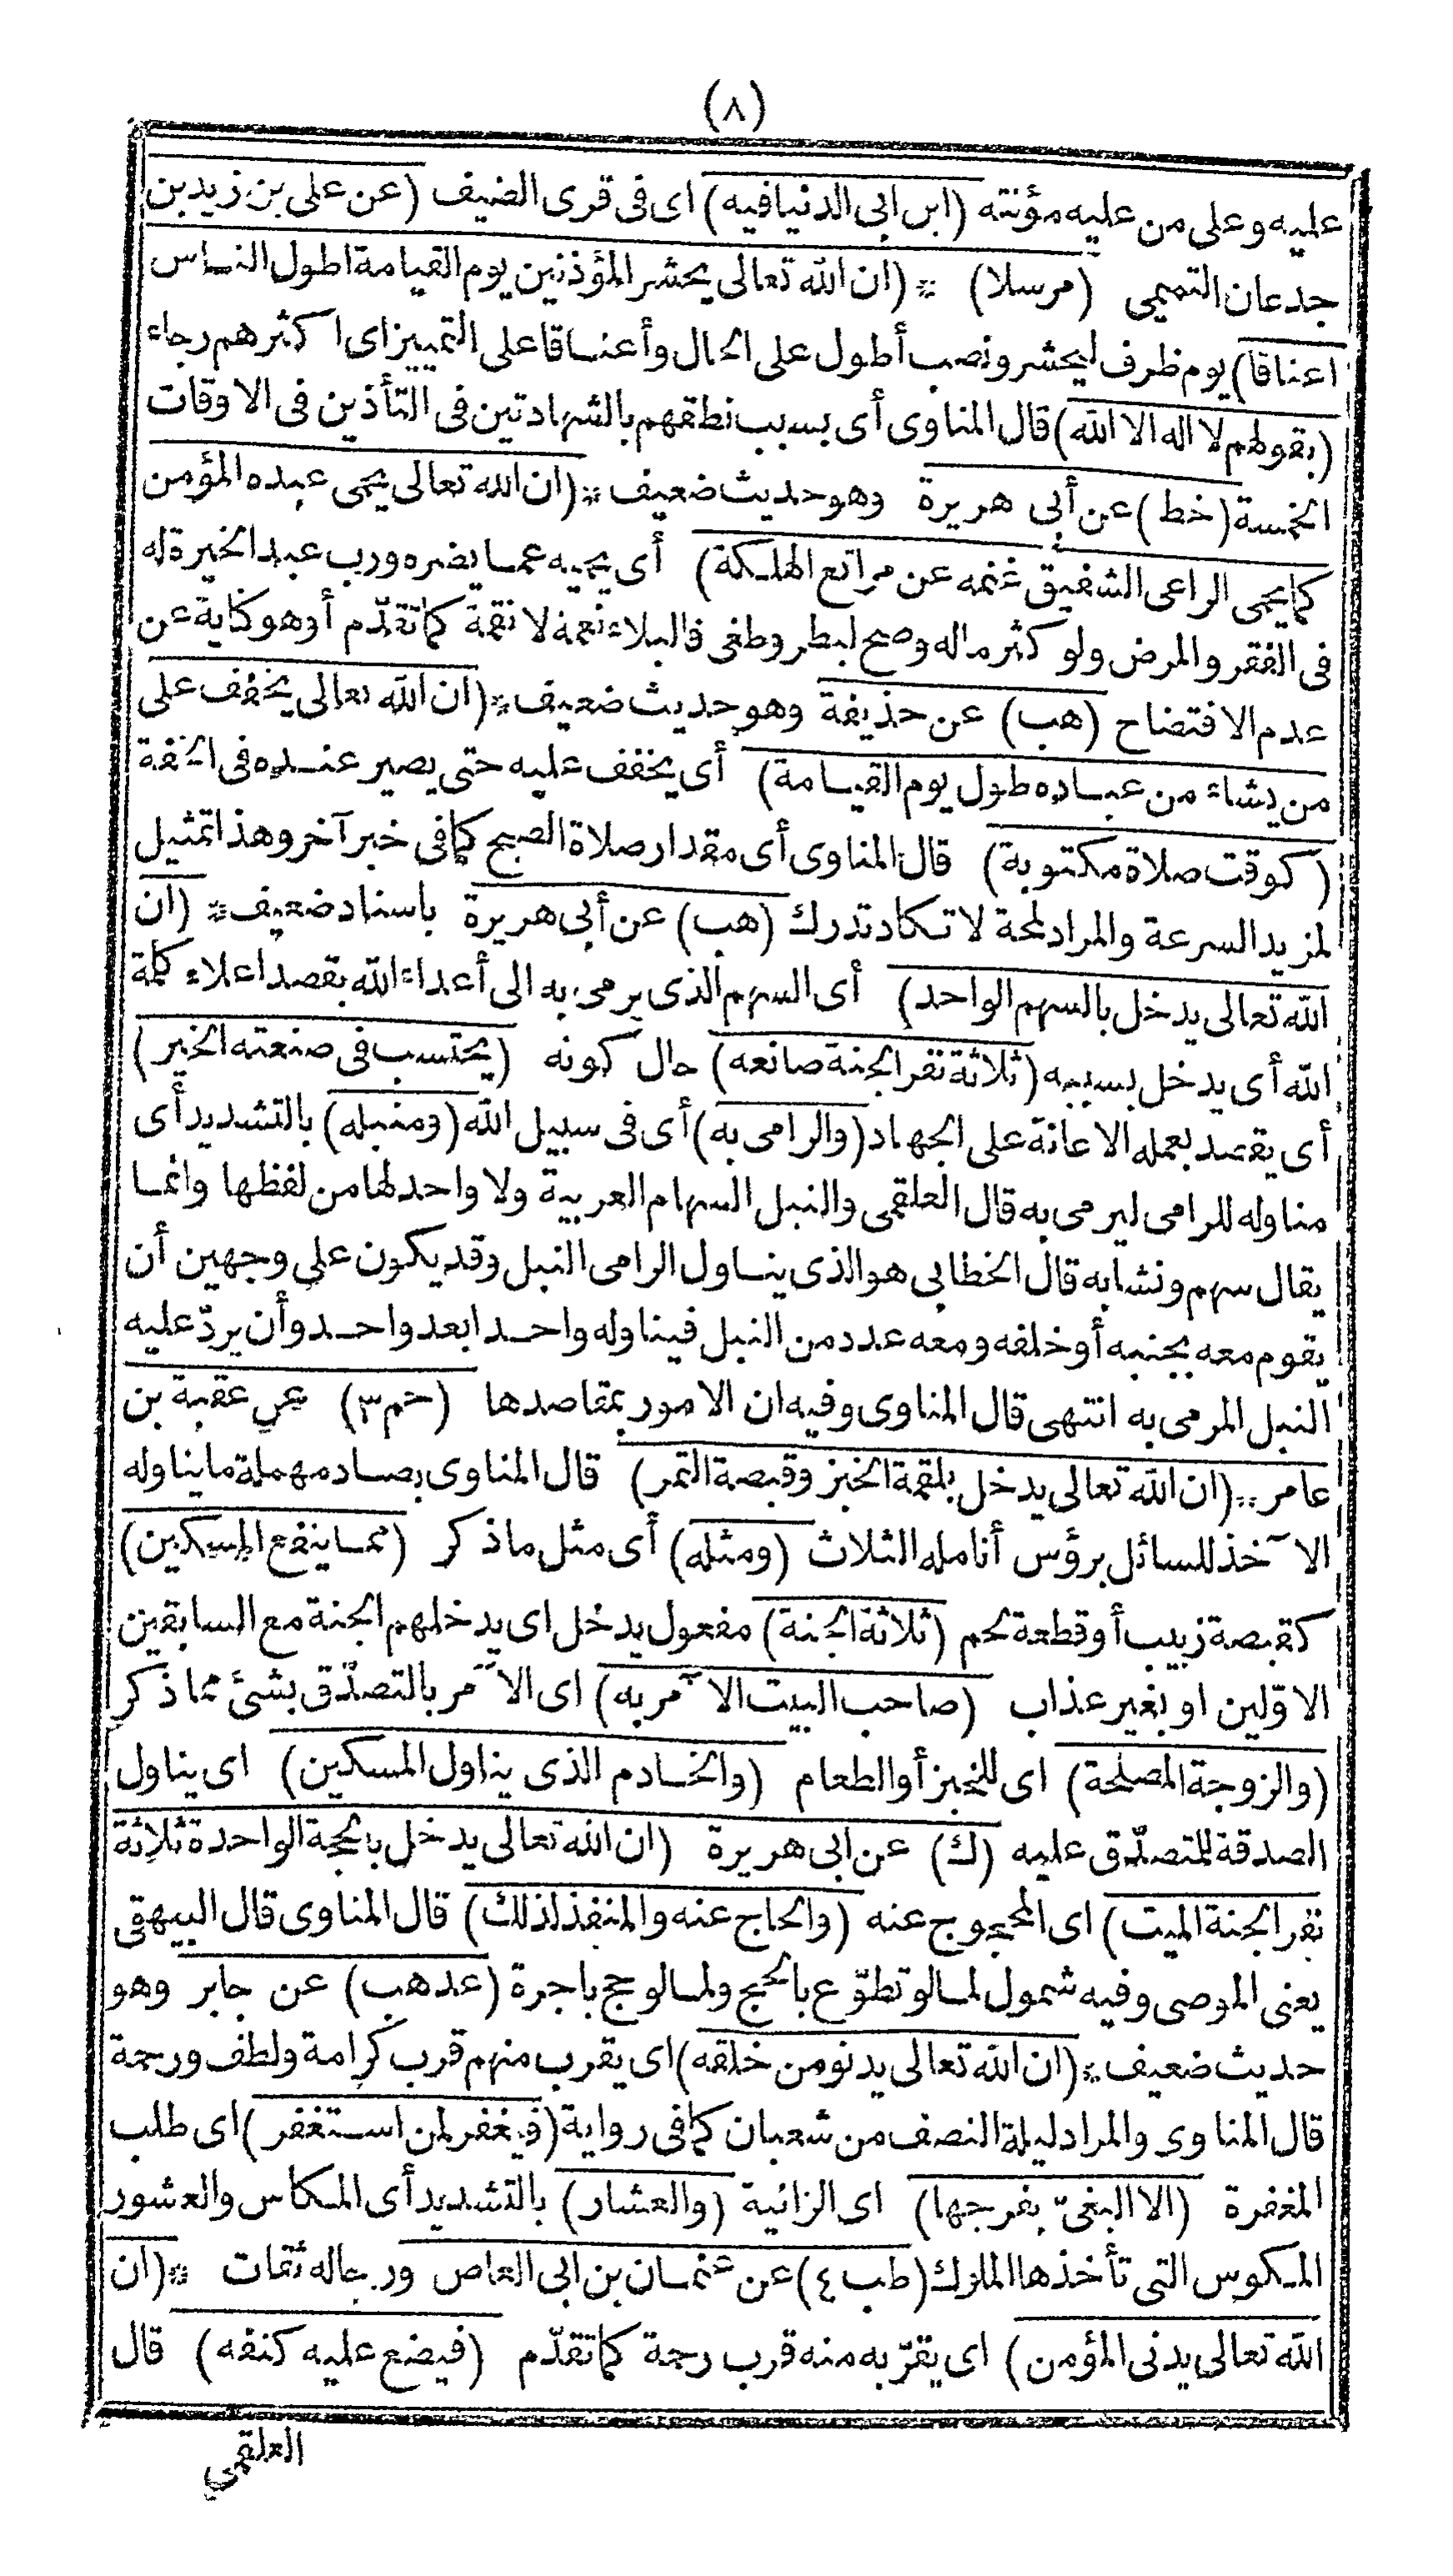 (٨)
عليه وعلى من عليه مؤنته (ابن ابى الدنيا فيه) اى فى قرى الضيف (عن على بن زيد بن
جدعان التميمى (مرسلا) * (ان الله تعالى يحشر المؤذنين يوم القيامة اطول الناس
اعناقا) يوم ظرف ليحشر ونصب أطول على الحال وأعناقا على التمييز اى اكثرهم رجاء
(بقولهم لا اله الا الله) قال المناوى أى بسبب نطقهم بالشهادتين فى التأذين فى الاوقات
الخمسة (خط) عن أبى هريرة وهو حديث ضعيف * (ان الله تعالى يحمى عبده المؤمن
كما يحمى الراعى الشفيق غنمه عن مراتع الهلكة) أى يحميه عما يضره ورب عبد الخيرة له
فى الفقر والمرض ولو كثر ماله وصح لبطر وطغى فالبلاء نعمة لا نقمة كما تقدّم أوهو كناية عن
عدم الافتضاح (هب) عن حذيفة وهو حديث ضعيف * (ان الله تعالى يخفف على
من يشاء من عباده طول يوم القيامة) أى يخفف عليه حتى يصير عنده فى الخفة
(كوقت صلاة مكتوبة) قال المناوى أى مقدار صلاة الصبح كما فى خبر آخر وهذا تمثيل
لمزيد السرعة والمراد لمحة لا تكاد تدرك (هب) عن أبى هريرة باسناد ضعيف * (ان
الله تعالى يدخل بالسهم الواحد) أى السهم الذى يرمى به الى أعداء الله بقصد اعلاء كلمة
الله أى يدخل بسببه (ثلاثة نفر الجنة صانعه) حال كونه (يحتسب فى صنعته الخير)
أى يقصد بعمله الاعانة على الجهاد (والرامى به) أى فى سبيل الله (ومنبله) بالتشديد أى
مناوله للرامى ليرمى به قال العلقمى والنبل السهام العربية ولا واحد لها من لفظها وانما
يقال سهم ونشابه قال الخطابى هو الذى يناول الرامى النبل وقد يكون على وجهين أن
يقوم معه بجنبه أو خلفه ومعه عدد من النبل فيناوله واحدا بعد واحد وأن يردّ عليه
النبل المرمى به انتهى قال المناوى وفيه ان الامور بمقاصدها (حم٣) عن عقبة بن
عامر * (ان الله تعالى يدخل بلقمة الخبز وقبصة التمر) قال المناوى بصاد مهملة ما يناوله
الآخذ للسائل برؤس أنامله الثلاث (ومثله) أى مثل ما ذكر (مما ينفع المسكين)
كقبصة زبيب أو قطعة لحم (ثلاثة الجنة) مفعول يدخل اى يدخلهم الجنة مع السابقين
الاوّلين او بغير عذاب (صاحب البيت الآمر به) اى الآمر بالتصدّق بشئ مما ذكر
(والزوجة المصلحة) اى للخبز أو الطعام (والخادم الذى يناول المسكين) اى يناول
الصدقة للمتصدّق عليه (ك) عن ابى هريرة (ان الله تعالى يدخل بالحجة الواحدة ثلاثة
نفر الجنة الميت) اى المحجوج عنه (والحاج عنه والمنفذ لذلك) قال المناوى قال البيهقى
يعنى الموصى وفيه شمول لما لو تطوّع بالحج ولما لو حج باجرة (عد هب) عن جابر وهو
حديث ضعيف * (ان الله تعالى يدنو من خلقه) اى يقرب منهم قرب كرامة ولطف ورحمة
قال المناوى والمراد ليلة النصف من شعبان كما فى رواية (فيغفر لمن استغفر) اى طلب
المغفرة (الا البغىّ بفرجها) اى الزانية (والعشار) بالتشديد أى المكاس والعشور
المكوس التى تأخذها الملوك (طب ٤) عن عثمان بن ابى العاص ورجاله ثقات * (ان
الله تعالى يدنى المؤمن) اى يقرّبه منه قرب رحمة كما تقدّم (فيضع عليه كنفه) قال
العلقمي